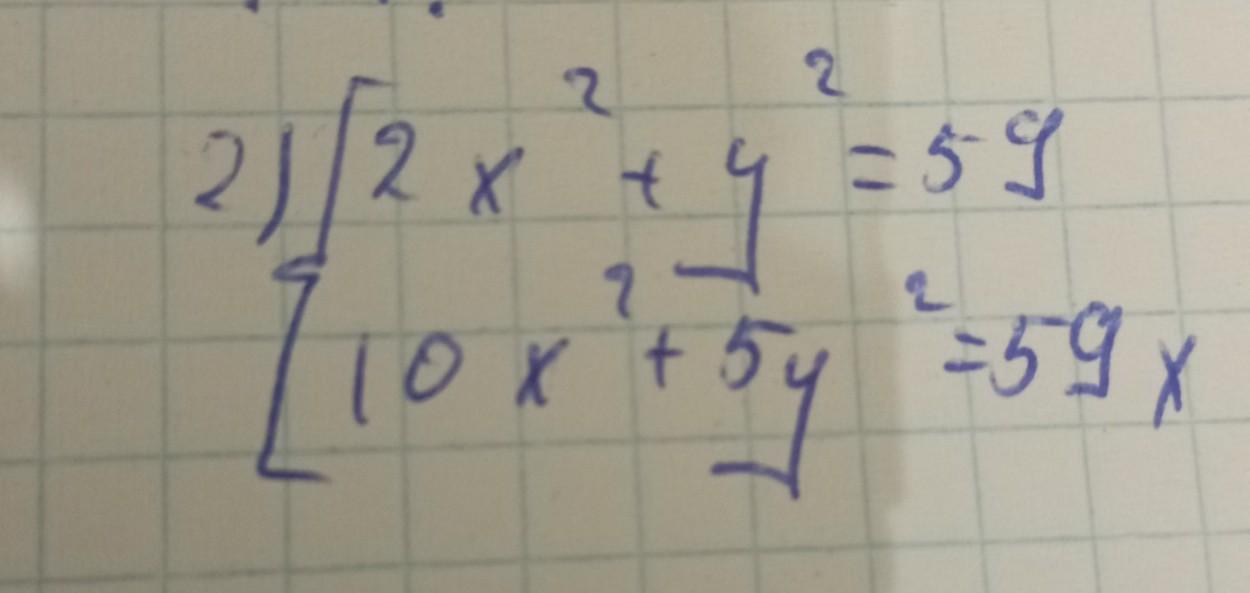 2) { 2x² + y² = 59
10x² + 5y² = 59x